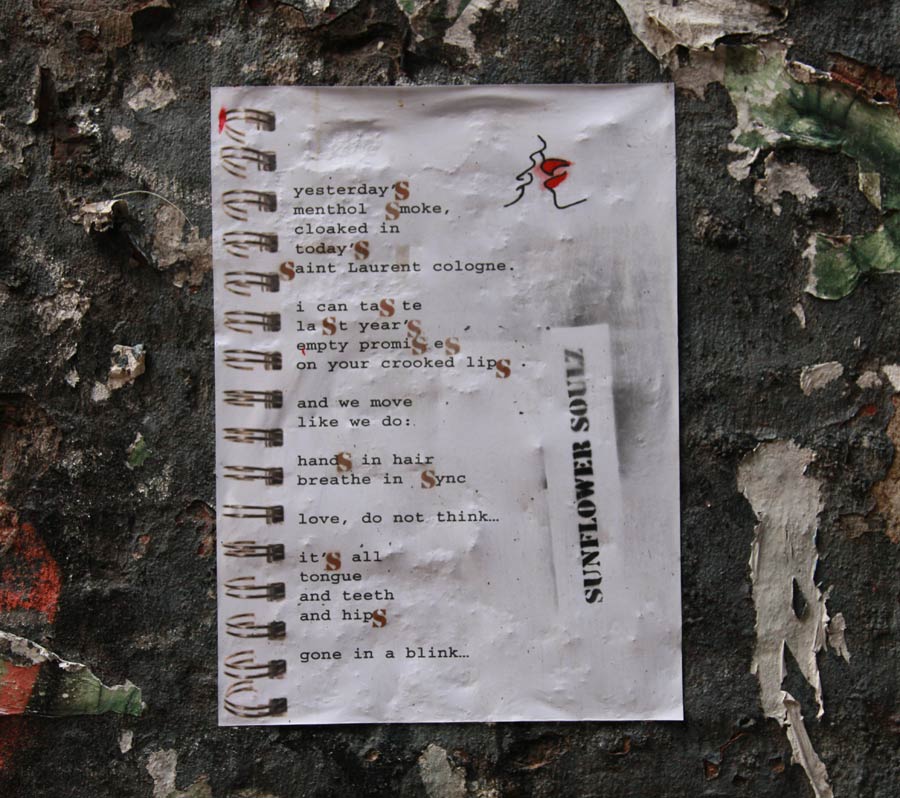 yesterday's
menthol Smoke,
cloaked in
today's
Saint Laurent cologne.
i can taSte
laSt year'S
empty promiSeS
on your crooked lipS.
and we move
like we do:
handS in hair
breathe in Sync
love, do not think…
it'S all
tongue
and teeth
and hipS
gone in a blink…
SUNFLOWER SOULZ